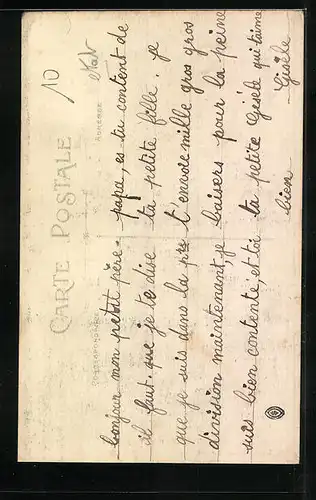 CARTE POSTALE
CORRESPONDANCE
ADRESSE
10
bonjour mon petit père.
il faut. que je te dise
que je suis dans la 1re
division maintenant je
suis bien contente, et toi
papa, es tu content de
ta petite fille. je
t'envoie mille gros gros
baisers pour la peine
ta petite Gisèle qui t'aime
bien Gisèle